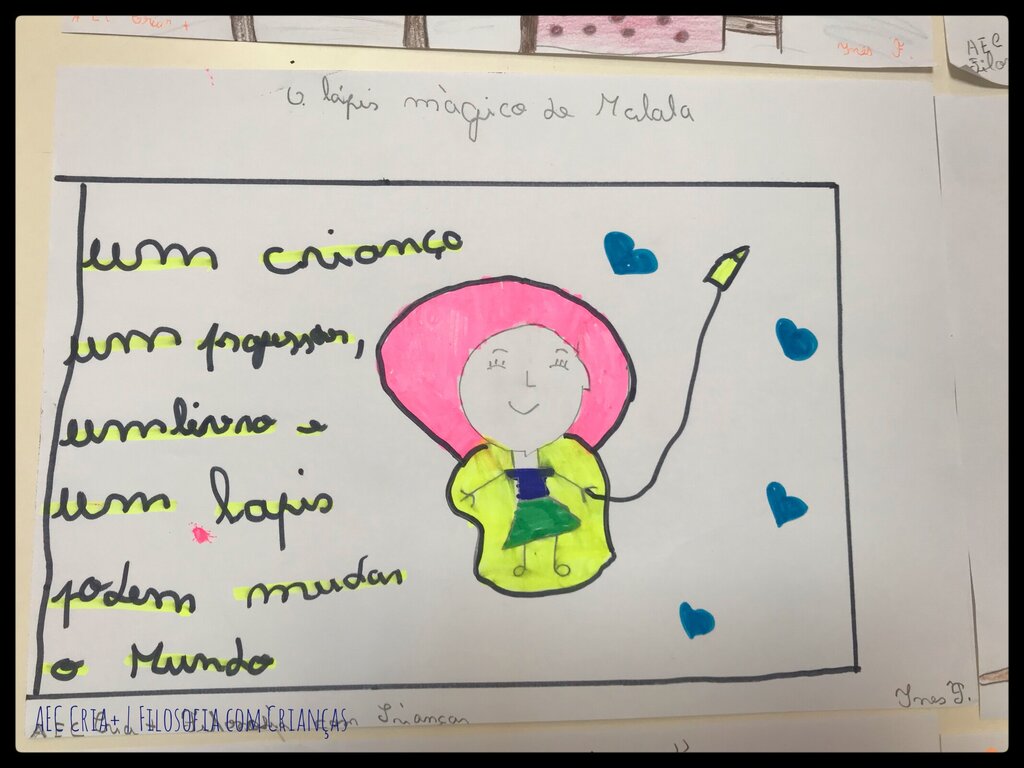 AEC Criar +
Ines F.
AEC
O lápis màgico de Malala
um crianço
um professor,
um livro e
um lapis
podem mudar
o Mundo
Ines F.
AEC Cria+ | Filosofia com Crianças
AEC Cria + com Crianças